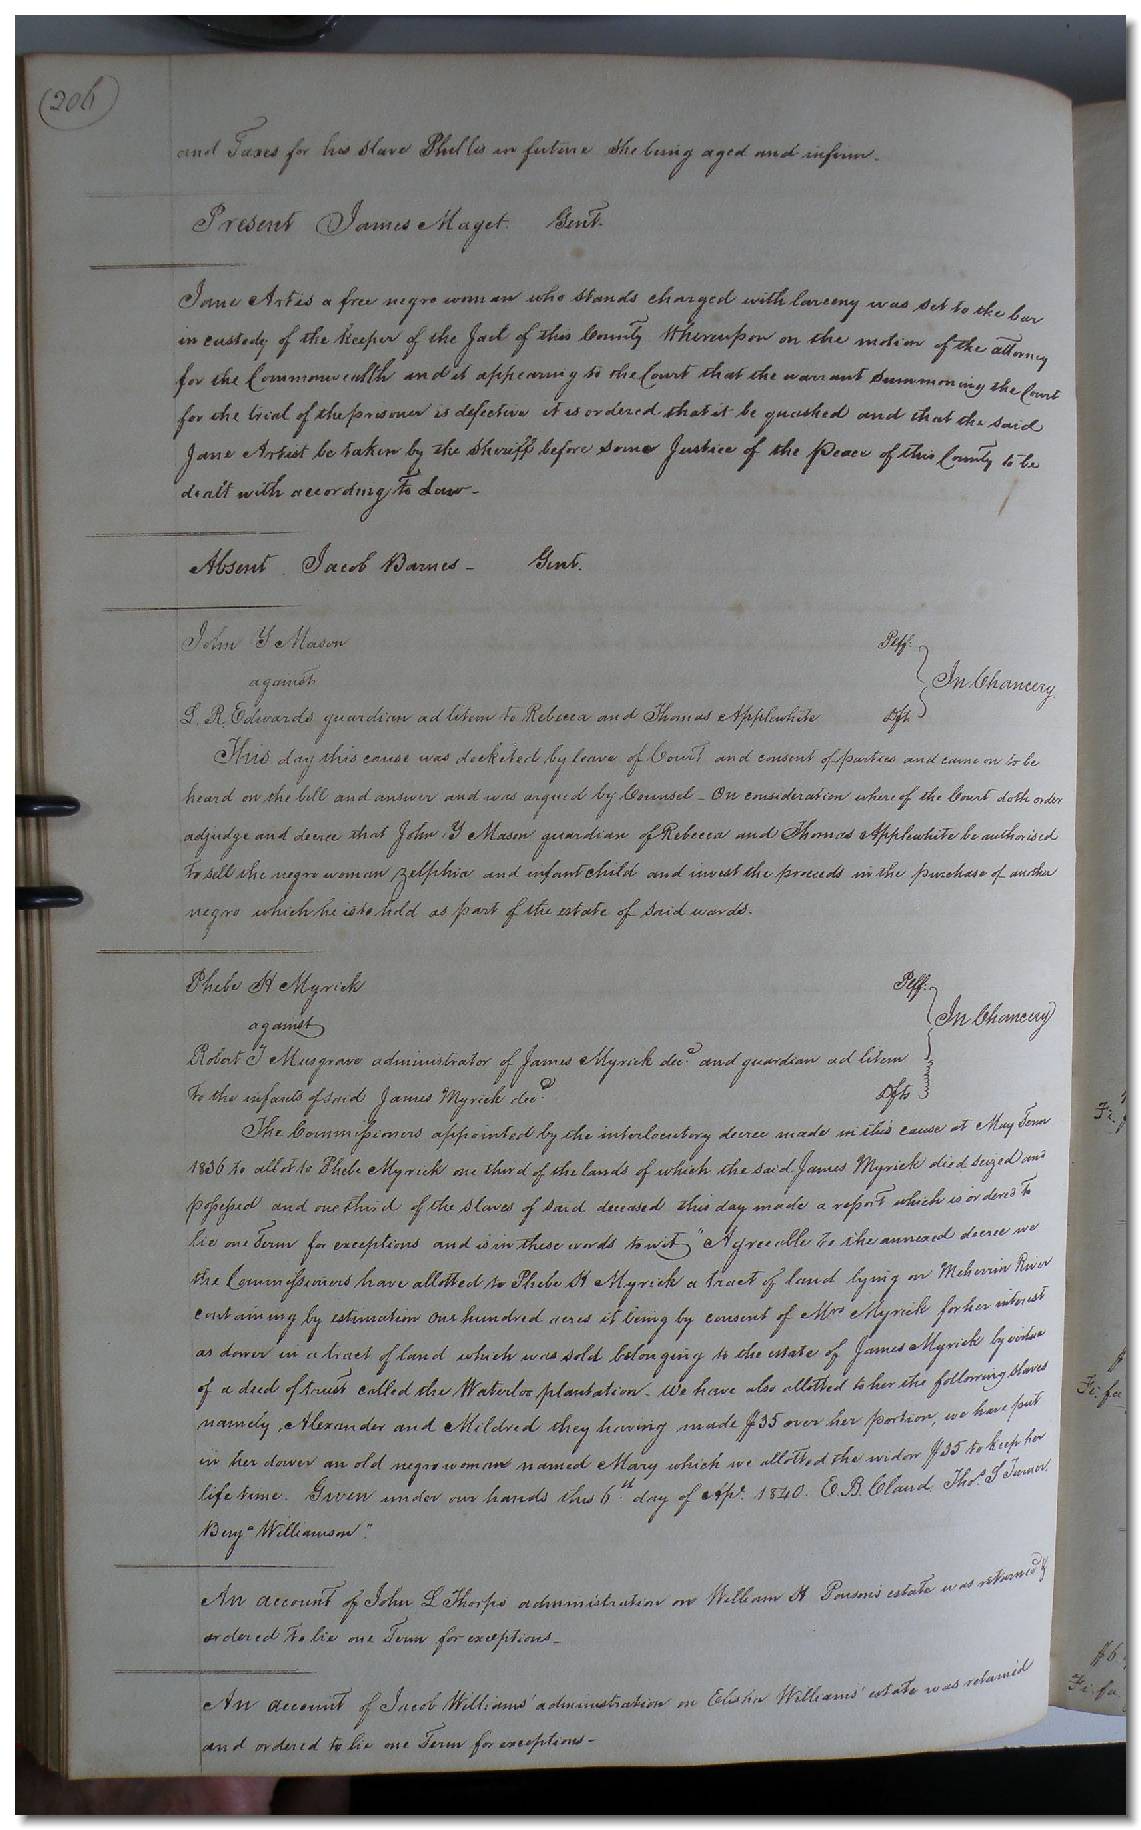 206
and Taxes for his slave Phillis in future she being aged and infirm.
Present James Maget. Gent.
Jane Artis a free negro woman who stands charged with larceny was set to the bar
in custody of the keeper of the Jail of this County Whereupon on the motion of the attorney
for the Commonwealth and it appearing to the Court that the warrant summoning the Court
for the trial of the prisoner is defective it is ordered that it be quashed and that the said
Jane Artist be taken by the sheriff before some Justice of the Peace of this County to be
dealt with according to Law-
Absent Jacob Barnes- Gent.
John Y Mason Plff.
against In Chancery
L. R. Edwards guardian ad litem to Rebecca and Thomas Applewhite Dfts
This day this cause was docketed by leave of Court and consent of parties and came on to be
heard on the bill and answer and was argued by Counsel - On consideration whereof the Court doth order
adjudge and decree that John Y Mason guardian of Rebecca and Thomas Applewhite be authorised
to sell the negro woman Zelphia and infant child and invest the proceeds in the purchase of another
negro which he is to hold as part of the estate of said wards.
Phebe H Myrick Plff.
against In Chancery
Robert T Musgrave administrator of James Myrick decd and guardian ad litem
to the infants of said James Myrick decd. Dfts
The Commissioners appointed by the interlocutory decree made in this cause at May Term
1836 to allot to Phebe Myrick one third of the lands of which the said James Myrick died seized and
possessed and one third of the slaves of said deceased this day made a report which is ordered to
lie one Term for exceptions and is in these words to wit, "Agreeable to the annexed decree we
the Commissioners have allotted to Phebe H Myrick a tract of land lying on Meherrin River
containing by estimation one hundred acres it being by consent of Mrs Myrick for her interest
as dower in a tract of land which was sold belonging to the estate of James Myrick by virtue
of a deed of trust called the Waterloo plantation. We have also allotted to her the following slaves
namely Alexander and Mildred they having made $35 over her portion, we have put
in her dower an old negro woman named Mary which we allotted the widow $35 to keep her
life time. Given under our hands this 6th day of Apl. 1840. E. B. Claud Thos. S Turner
Benja Williamson".
An account of John L Thorps administration on William H Parsons estate was returned &
ordered to lie one Term for exceptions-
An account of Jacob Williams' administration on Elisha Williams' estate was returned
and ordered to lie one Term for exceptions-
Fi. fa
$6.
Fi. fa.